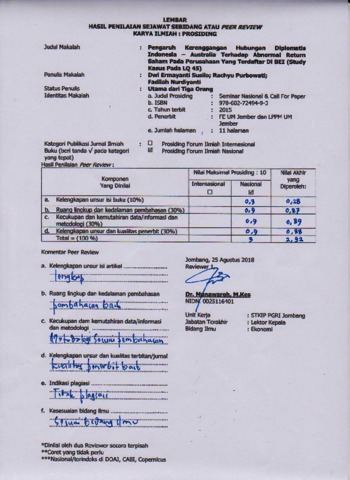 LEMBAR
HASIL PENILAIAN SEJAWAT SEBIDANG ATAU PEER REVIEW
KARYA ILMIAH : PROSIDING
Judul Makalah : Pengaruh Kerenggangan Hubungan Diplomatis
Indonesia – Australia Terhadap Abnormal Return
Saham Pada Perusahaan Yang Terdaftar Di BEI (Study
Kasus Pada LQ 45)
Penulis Makalah : Dwi Ermayanti Susilo; Rachyu Purbowati;
Fadilah Nurdiyanti
Status Penulis : Utama dari Tiga Orang
Identitas Makalah : a. Judul Prosiding : Seminar Nasional & Call For Paper
b. ISBN : 978-602-72494-9-3
c. Tahun terbit : 2015
d. Penerbit : FE UM Jember dan LPPM UM
Jember
e. Jumlah halaman : 11 halaman
Kategori Publikasi Jurnal Ilmiah : ☐ Prosiding Forum Ilmiah Internasional
Buku (beri tanda √ pada kategori ☑ Prosiding Forum Ilmiah Nasional
yang tepat)
Hasil Penilaian Peer Review :
Komponen Yang Dinilai Nilai Maksimal Prosiding : 10 Nilai Akhir yang Diperoleh:
Internasional ☐ Nasional ☑
a. Kelengkapan unsur isi buku (10%) 0,3 0,28
b. Ruang lingkup dan kedalaman pembahasan (30%) 0,9 0,87
c. Kecukupan dan kemutahiran data/informasi dan
metodologi (30%) 0,9 0,89
d. Kelengkapan unsur dan kualitas penerbit (30%) 0,9 0,88
Total = (100 %) 3 2,92
Komentar Peer Review
Jombang, 25 Agustus 2018
a. Kelengkapan unsur isi artikel
Reviewer
lengkap
b. Ruang lingkup dan kedalaman pembahasan
Dr. Munawaroh, M.Kes
NIDN 0025116401
pembahasan baik
c. Kecukupan dan kemutahiran data/informasi
dan metodologi
Unit Kerja : STKIP PGRI Jombang
Jabatan Terakhir : Lektor Kepala
Bidang Ilmu : Ekonomi
Metodologi sesuai pembahasan
d. Kelengkapan unsur dan kualitas terbitan/jurnal
kualitas penerbit baik
e. Indikasi plagiasi
Tidak plagiasi
f. Kesesuaian bidang ilmu
Sesuai bidang ilmu
*Dinilai oleh dua Reviewer secara terpisah
**Coret yang tidak perlu
***Nasional/terindeks di DOAJ, CABI, Copernicus